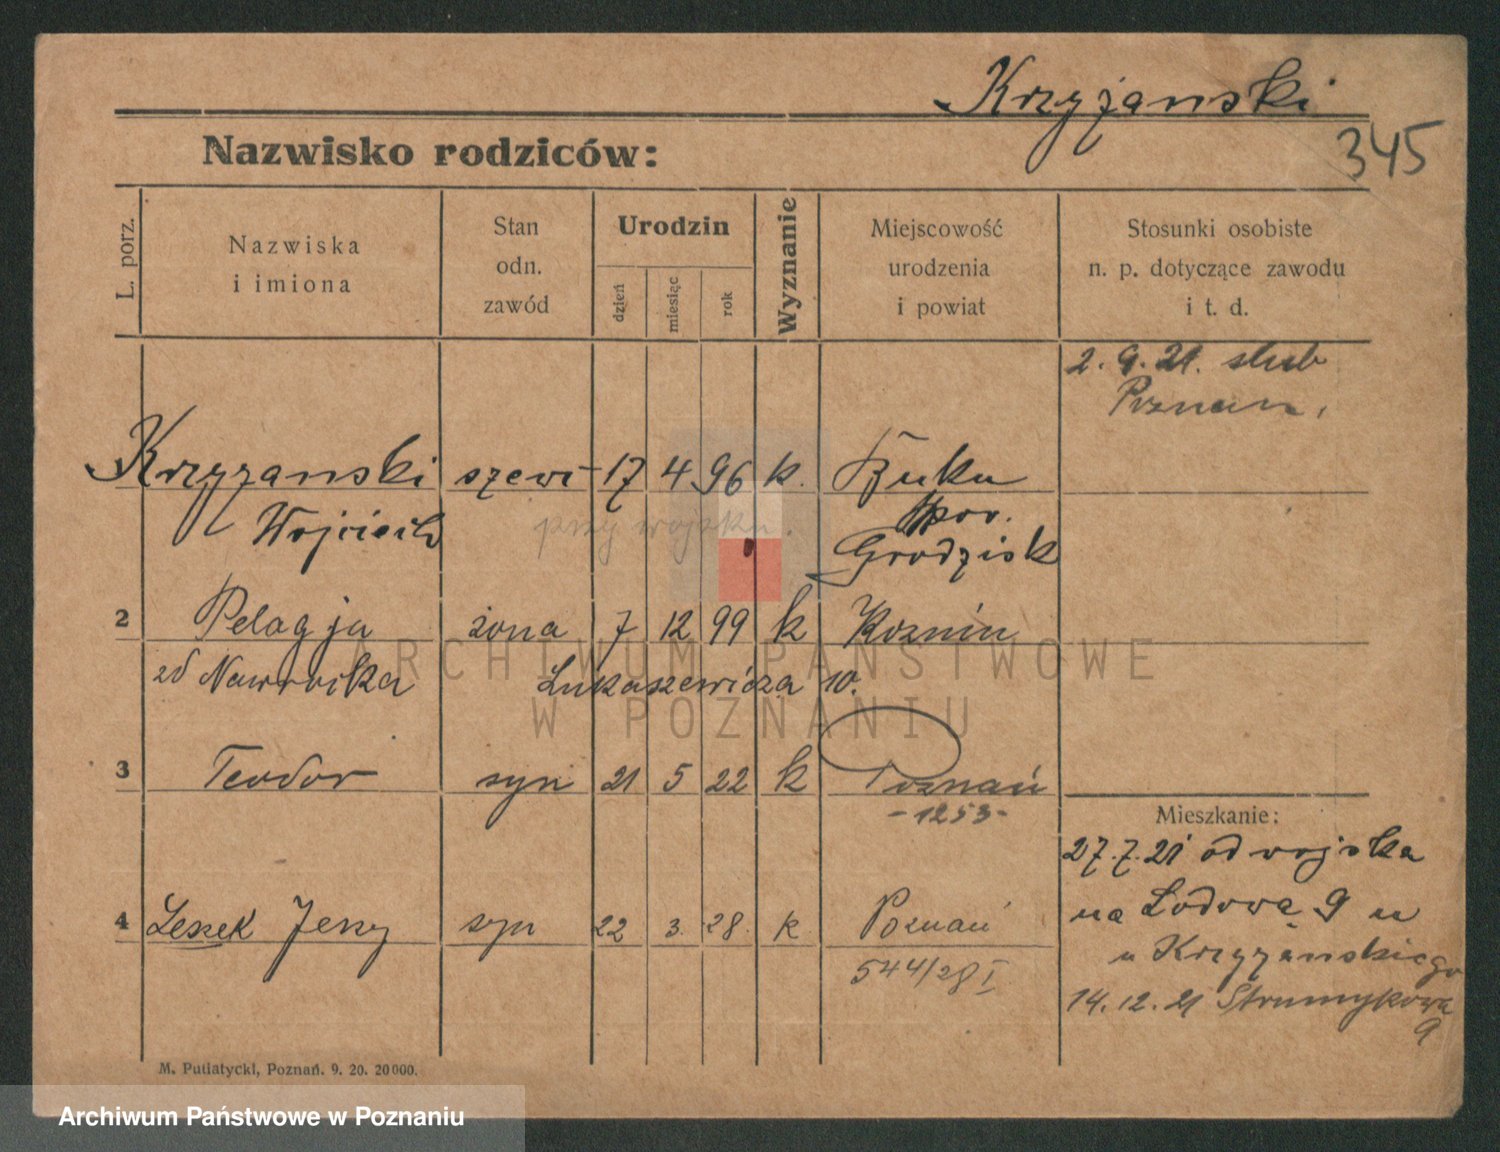 Krzyżanski
345
Nazwisko rodziców:
L. porz.
Nazwiska i imiona
Stan odn. zawód
Urodzin
dzień
miesiąc
rok
Wyznanie
Miejscowość urodzenia i powiat
Stosunki osobiste n. p. dotyczące zawodu i t. d.
2. 9. 21. slub
Poznan,
Krzyzanski szewc 17 4 96 k. Buku
Wojciech przy wojsku. pow.
Grodzisk
2 Pelagja żona 7 12 99 k
zd Nawrocka Łukaszewicza 10.
3 Teodor syn 21 5 22 k Poznań
-1253-
Mieszkanie:
27.7.21 od wojska
4 Leszek Jerzy syn 22 3. 28. k Poznań
na Łodową 9 u
544/28 I
u Krzyżanskiego
14.12.21 Strumykowa
9
M. Putiatycki, Poznań. 9. 20. 20000.
ARCHIWUM PAŃSTWOWE
W POZNANIU
Archiwum Państwowe w Poznaniu